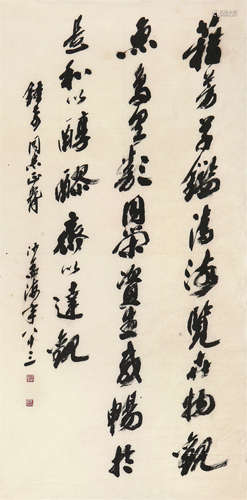 藉芳草鑑清流覽卉物觀
魚鳥具類同榮資生咸暢於
是和以醇醪齊以達觀
同志正
沙孟海年八十三